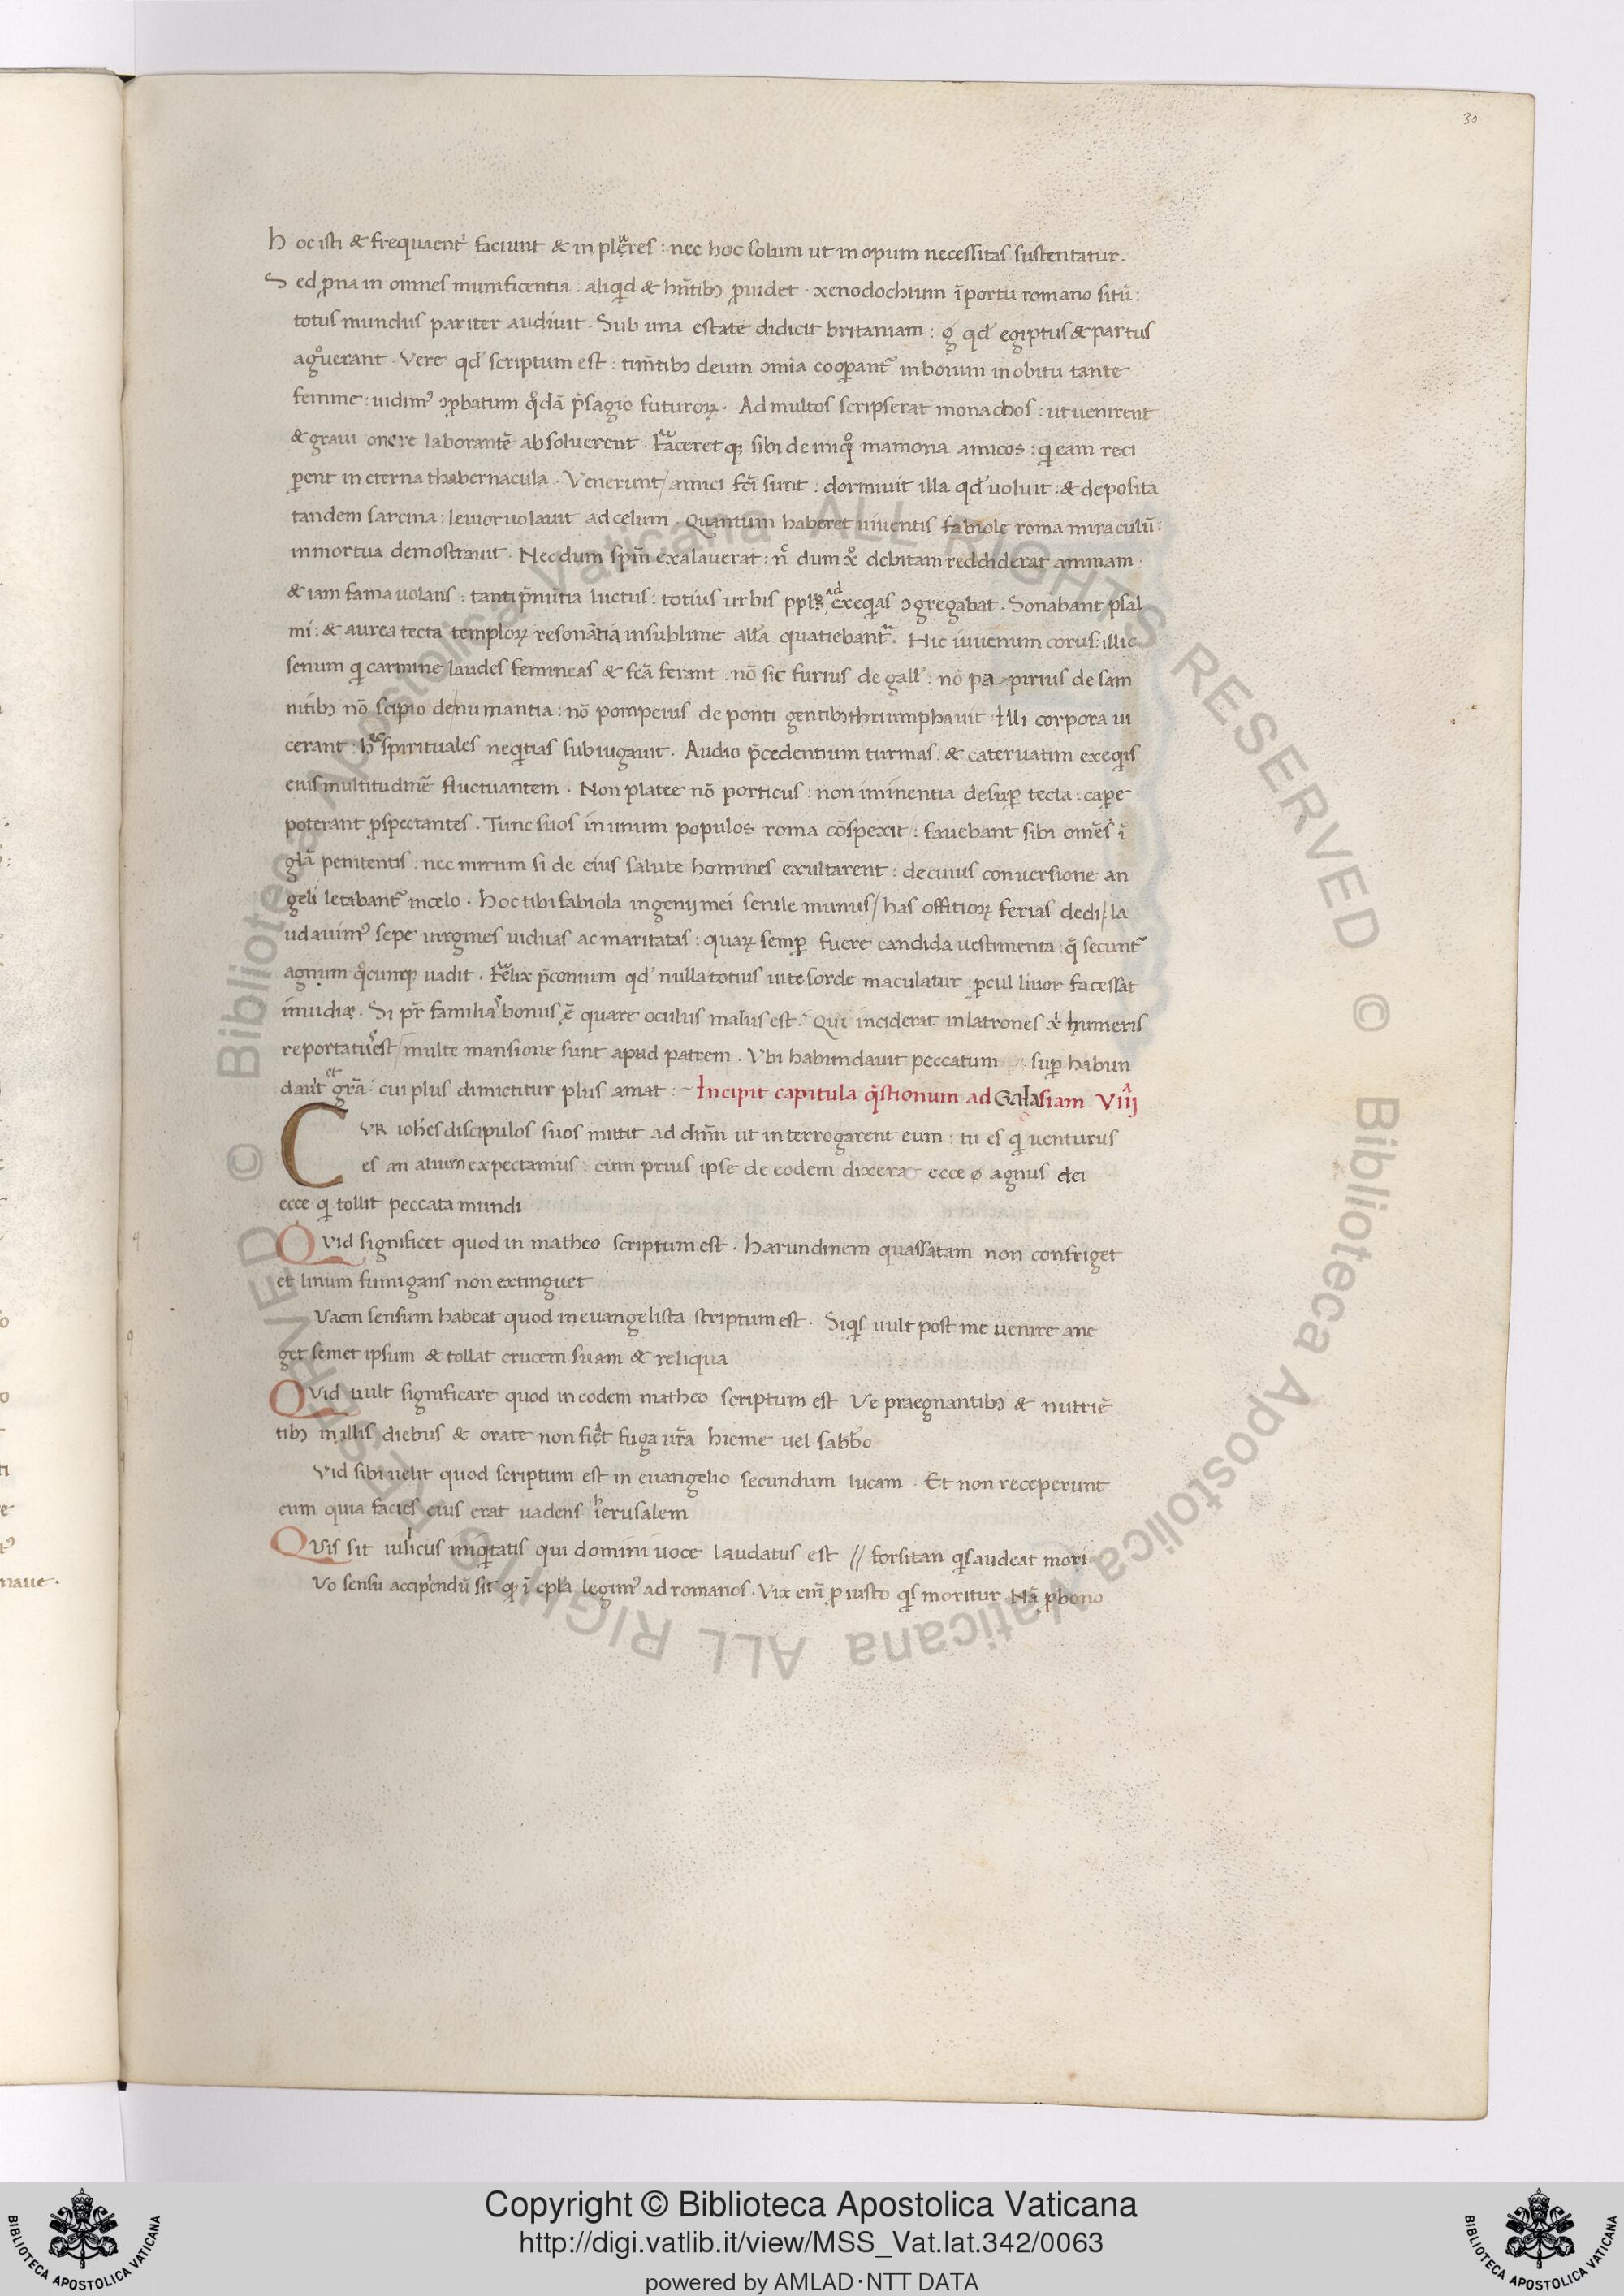 30
hoc isti & frequaent᷒ faciunt & in plęres : nec hoc solum ut in opum necessitas sustentatur.
Sed p̱na in omnes munificentia : aliqid & hn̄tibꝫ p̱uidet · xenodochium ī portu romano sitū :
totus mundus pariter audivit · Sub una estate didicit britaniam : qd̓ egiptus & partus
agͦverant · Vere qd̓ scriptum est : tim̄tibꝫ deum omīa coop̱ant᷑ in bonum in obitu tante
femine : uidim᷒ ɔp̱batum qͦdā p̄sagio futuroꝝ · Ad multos scripserat monachos : ut uenirent
& graui onere laborantē absoluerent · Faceretqꝫ sibi de iniqͦ mamona amicos : qi eam reci
p̱ent in eterna thabernacula · Venerunt / amici fc̄i sunt : dormiuit illa qd̓ uoluit : & deposita
tandem sarcina : leuior uolauit ad celum · Quantum haberet uiuentis fabiole roma miraculū :
in mortua demostrauit · Nec dum sp̄m exalauerat : nͨ dum xͦ debitam reddiderat animam ·
& iam fama uolans : tanti p̄nūtia luctus : totius urbis ppls᷒ ad exeqias ɔgregabat · Sonabant psal
mi : & aurea tecta temploꝝ resonātia in sublime alła quatiebant᷑. Hic iuuenum corus : illic
senum qi carmine laudes femineas & fc̄a ferant : nō sic furius de gall᷒ : nō pa pirius de sam
nitibꝫ nō scipio de numantia : nō pompeius de ponti gentibꝫ thriumphauit · Illi corpora ui
cerant : hec spirituales neqitias subiugauit · Audio p̄cedentium turmas : & cateruatim exeqis
eius multitudinē fluctuantem · Non platee nō porticus : non iminentia desup̱ tecta : cap̱e
poterant p̱spectantes · Tunc suos in unum populos roma cōspexit / : fauebant sibi om̄es ī
głā penitentis : nec mirum si de eius salute homines exultarent : de cuius conuersione an
geli letabant᷑ in cęlo · hoc tibi fabiola ingenij mei senile munus / has offitioꝝ ferias dedi / la
udauim᷒ sepe uirgines uiduas ac maritatas : quaꝝ semp̱ fuere candida uestimenta : q̄ secunt᷑
agnum qͦcunqꝫ uadit · Felix p̄conium qd̓ nulla totius uite sorde maculatur : p̱cul liuor facessat
inuidiæ · Si pr̄ familia᷒ bonus ē quare oculus malus est · Qui inciderat in latrones xi humeris
reportatu᷒ est / multe mansione sunt apud patrem · Vbi habundauit peccatum sup̱ habun
dauit et gr̄a : cui plus dimictitur plus amat : ~ Incipit capitula q̄stionum ad Galasiam VIIIJ
CVR ioh̄es discipulos suos mittit ad dn̄m ut interrogarent eum : tu es qi uenturus
es an alium expectamus : cum prius ipse de eodem dixera ecce ø agnus dei
ecce qi tollit peccata mundi
Quid significet quod in matheo scriptum est · harundinem quassatam non confriget
et linum fumigans non extinguet
Vaem sensum habeat quod in euangelista scriptum est · Siqis uult post me uenire ane
get semet ipsum & tollat crucem suam & reliqua
Quid uult significare quod in eodem matheo scriptum est Ve praegnantibꝫ & nutriē
tibꝫ in illis diebus & orate non fięt fuga ur̄a hieme uel sabb̄o
Vid sibi uelit quod scriptum est in euangelio secundum lucam · Et non receperunt
eum quia facies eius erat uadens ierusalem
Quis sit iulicus iniqitatis qui domini uoce laudatus est // forsitan qis audeat mori
Vo sensu accipiendū sit qꝫ ī epła legim᷒ ad romanos · Vix em̄ p̱ iusto qis moritur · Nā p̱ bono
Copyright © Biblioteca Apostolica Vaticana
http://digi.vatlib.it/view/MSS_Vat.lat.342/0063
powered by AMLAD·NTT DATA
BIBLIOTECA APOSTOLICA VATICANA
BIBLIOTECA APOSTOLICA VATICANA
© Biblioteca Apostolica Vaticana ALL RIGHTS RESERVED © Biblioteca Apostolica Vaticana ALL RIGHTS RESERVED